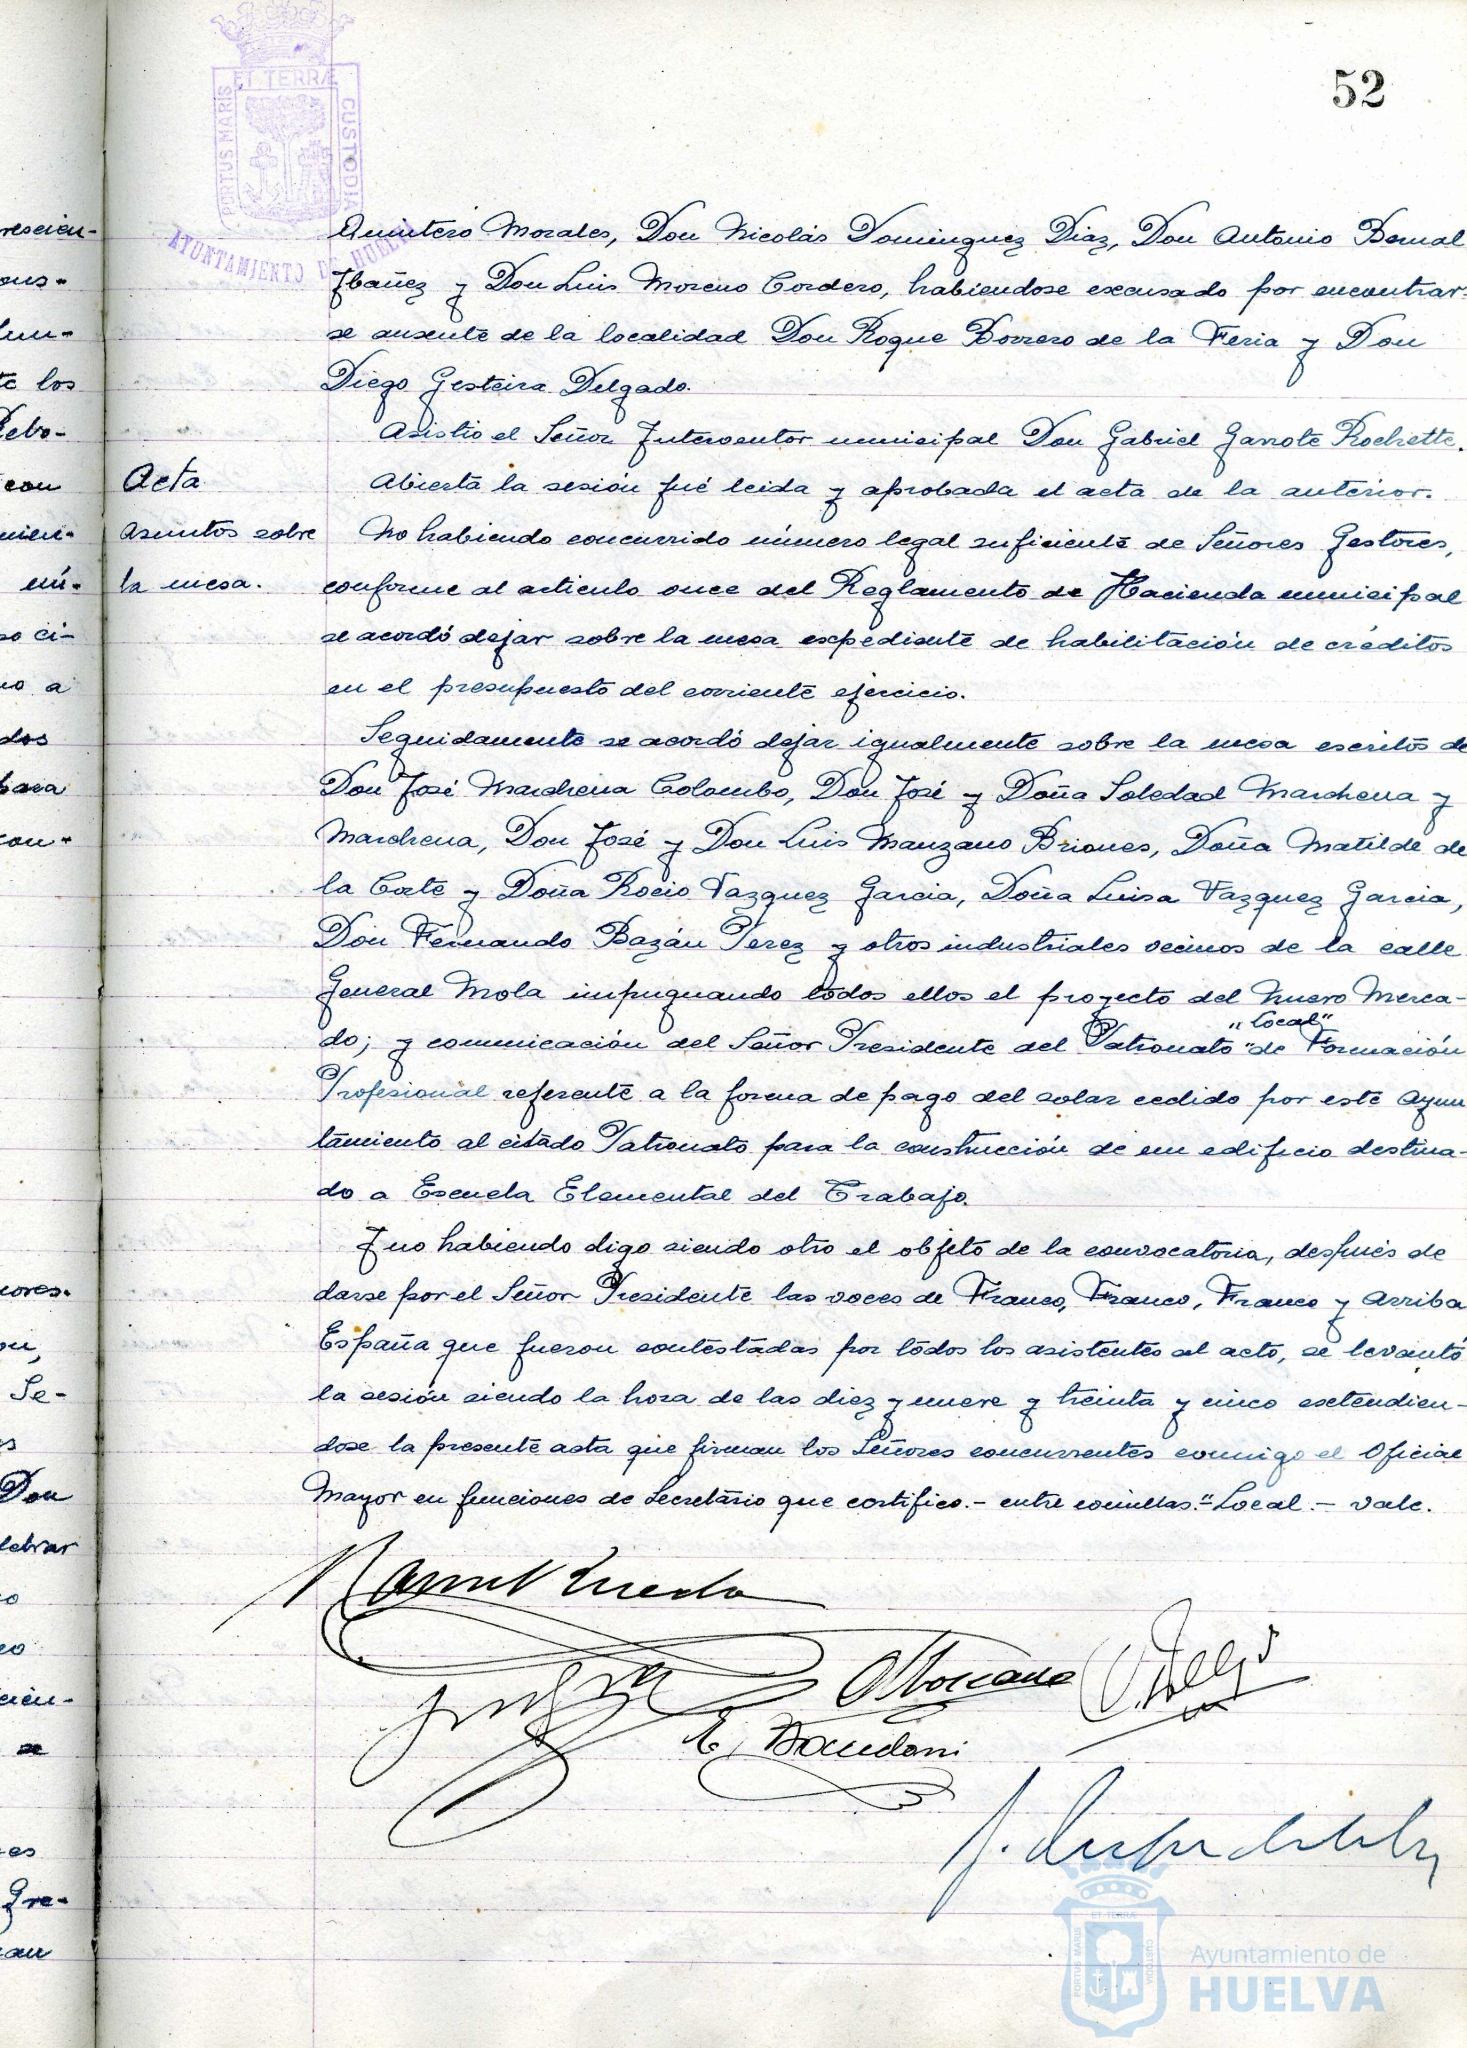 52
ET TERRÆ
PORTUS MARIS
CUSTODIA
AYUNTAMIENTO DE HUELVA
Quintero Morales, Don Nicolás Dominguez Diaz, Don Antonio Bernal
Ibañez y Don Luis Moreno Cordero, habiendose escusado por encontrar-
se ausente de la localidad Don Roque Borrero de la Feria y Don
Diego Gesteira Delgado.
Asistio el Señor Interventor municipal Don Gabriel Garrote Rochette.
Acta
Abierta la sesión fué leida y aprobada el acta de la anterior.
Asuntos sobre
la mesa.
No habiendo concurrido número legal suficiente de Señores Gestores,
conforme al articulo once del Reglamento de Hacienda municipal
se acordó dejar sobre la mesa expediente de habilitación de créditos
en el presupuesto del corriente ejercicio.
Seguidamente se acordó dejar igualmente sobre la mesa escritos de
Don José Marchena Colombo, Don José y Doña Soledad Marchena y
Marchena, Don José y Don Luis Manzano Briones, Doña Matilde de
la Corte y Doña Rocio Vazquez Garcia, Doña Luisa Vazquez Garcia,
Don Fernando Bazán Perez y otros industriales vecinos de la calle
General Mola impugnando todos ellos el proyecto del Nuevo Merca-
"Local"
do; y comunicación del Señor Presidente del Patronato " de Formación
Profesional referente a la forma de pago del solar cedido por este Ayun
tamiento al citado Patronato para la construcción de un edificio destina-
do a Escuela Elemental del Trabajo.
Y no habiendo digo siendo otro el objeto de la convocatoria, después de
darse por el Señor Presidente las voces de Franco, Franco, Franco y Arriba
España que fueron contestadas por todos los asistentes al acto, se levantó
la sesión siendo la hora de las diez y nueve y treinta y cinco extendien-
dose la presente acta que firman los Señores concurrentes conmigo el Oficial
Mayor en funciones de Secretario que certifico.- entre comillas."Local.- vale.
Ayuntamiento de
HUELVA